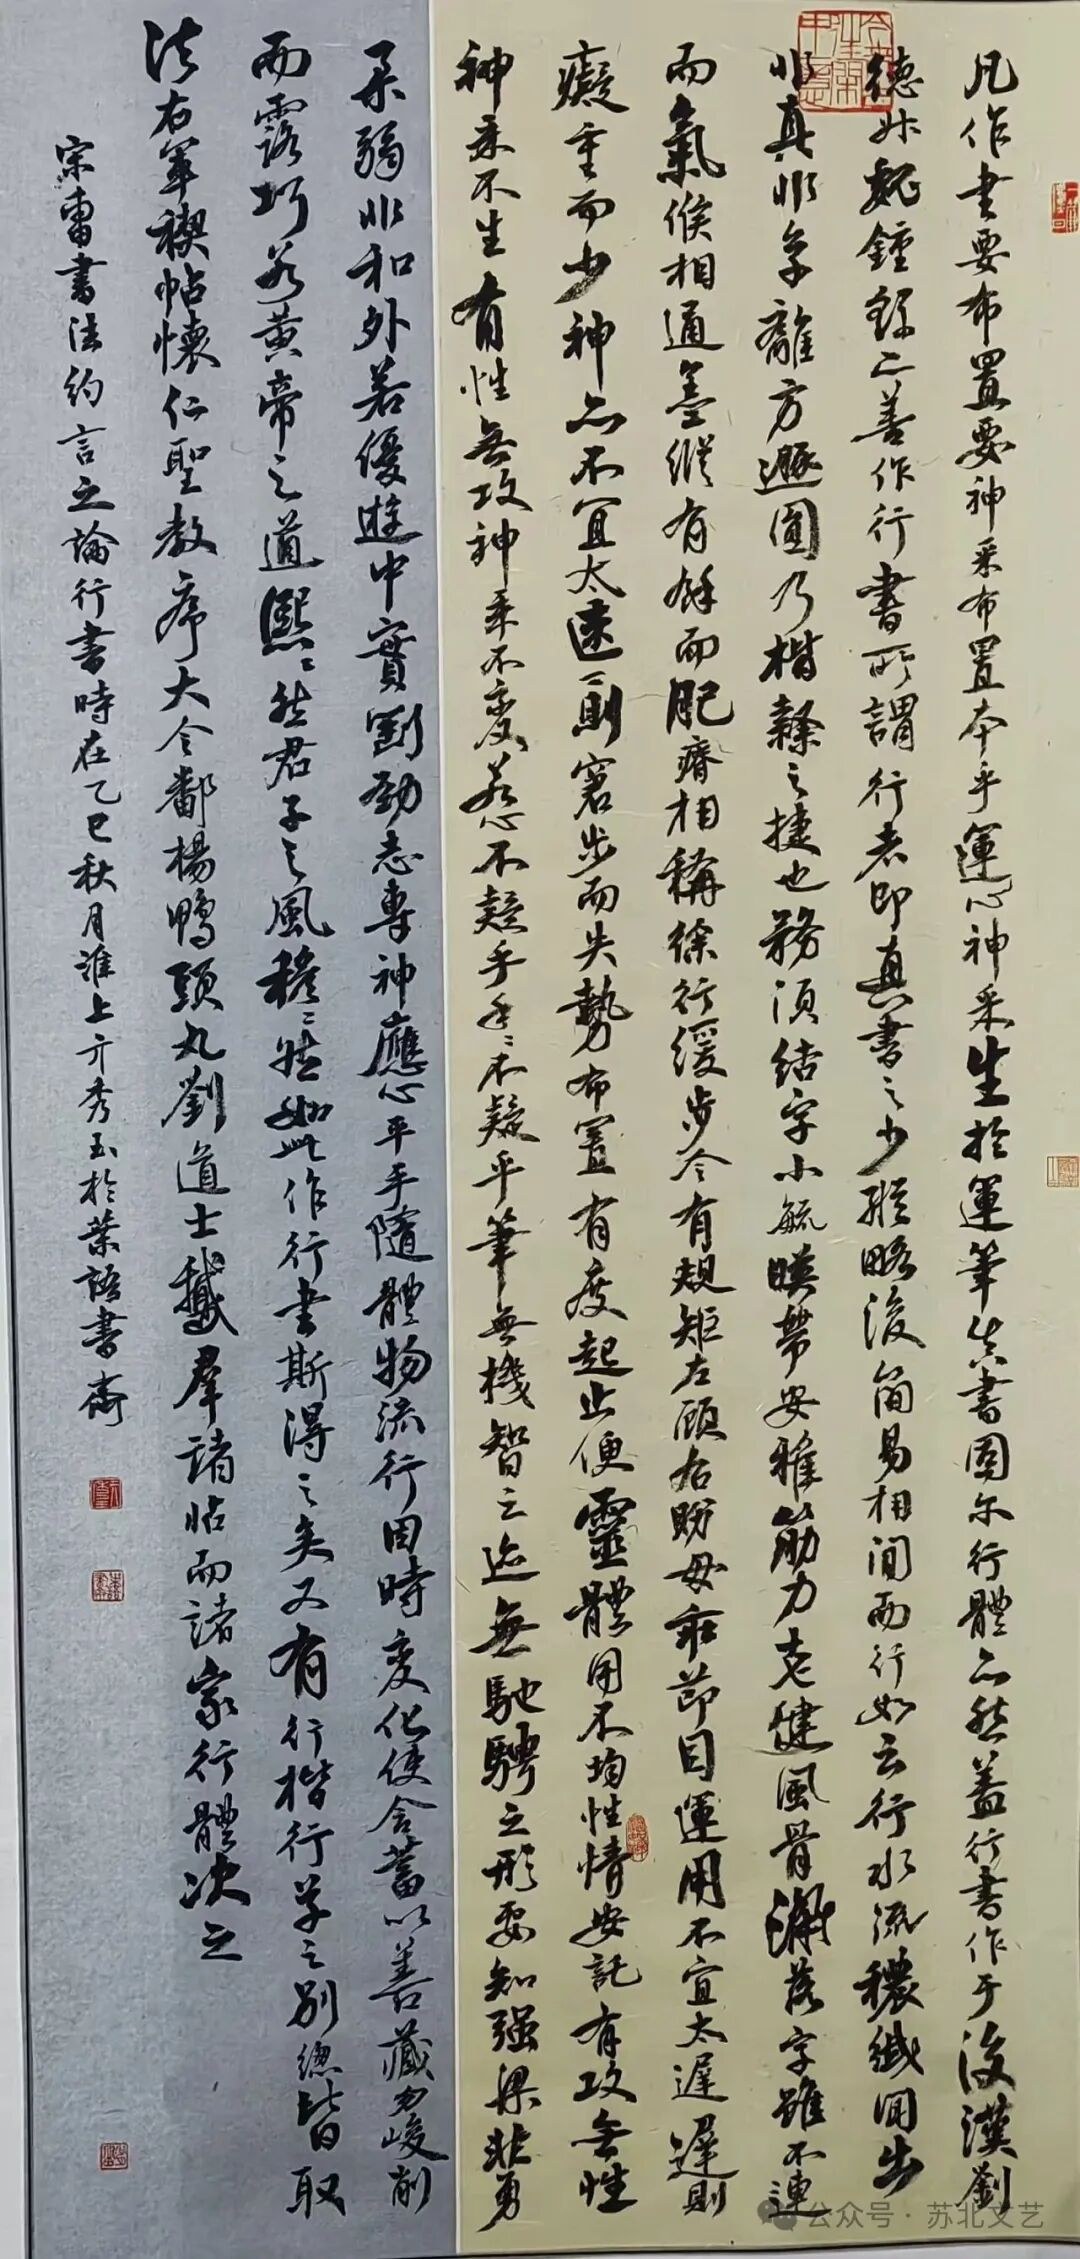 凡作書要布置要神采布置本乎運心神采生於運筆真書固尔行體亦然蓋行書作于後漢劉
德昇魏鍾繇亦善作行書所謂行者即真書之少縱略後簡易相間而行如云行水流穠纖间出
非真非草離方遁圓乃楷隸之捷也務須结字小疏暎帶安雅筋力老健風骨灑落字雖不連
而氣候相通墨縱有餘而肥瘠相稱徐行缓步令有規矩左顾右盼毋乖節目運用不宜太遲遲則
癡重而少神亦不宜太速〻則窘步而失勢布置有度起止便靈體用不均性情安託有攻無性
神采不生有性無攻神采不变若心不疑乎手〻不疑乎筆無機智之迹無馳騁之形要知强梁非勇
柔弱非和外若優遊中實剛勁志專神應心平手隨體物流行因時变化使含蓄以善藏勿峻削
而露巧若黄帝之道熙〻然君子之風穆〻然如此作行書斯得之矣又有行楷行草之别總皆取
法右軍禊帖懷仁聖教序大令鄱楊鴨頭丸劉道士鵝羣諸帖而諸家行體次之
宋曹書法约言之論行書時在乙巳秋月淮上亓秀玉於葉語書齋
公众号·苏北文艺